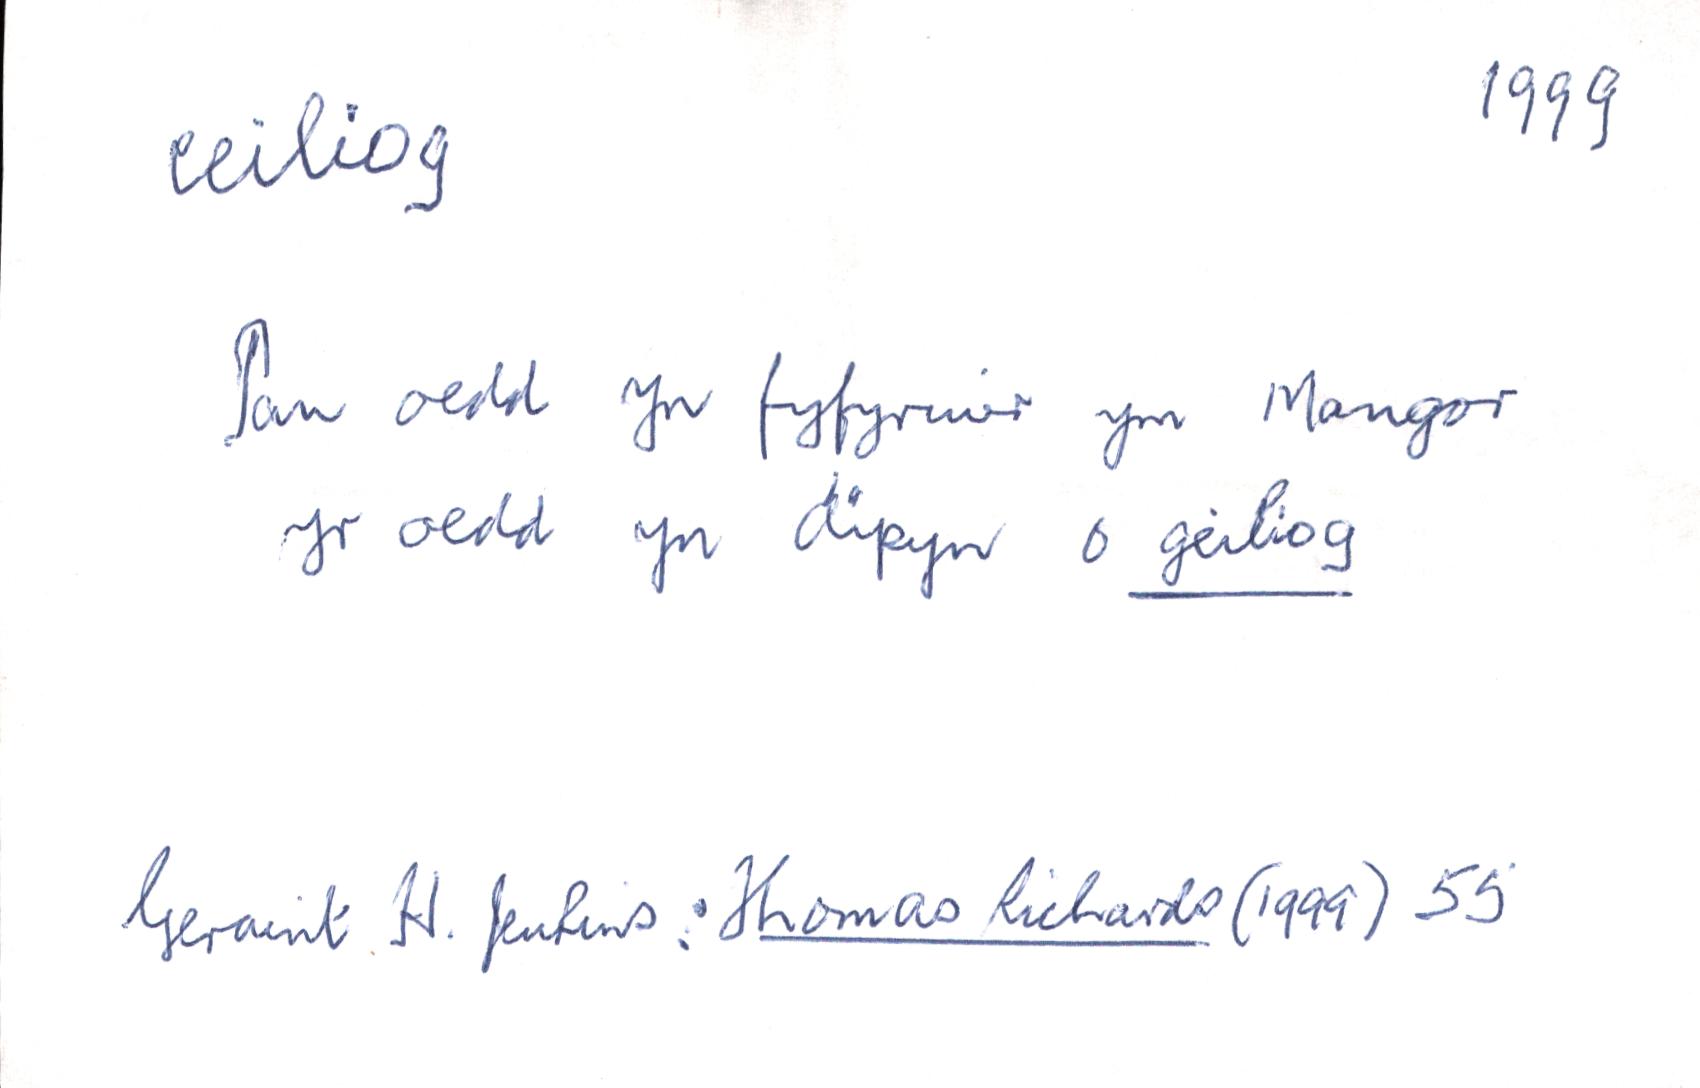 ceiliog 1999
Pan oedd yn fyfyriwr ym Mangor
yr oedd yn dipyn o geiliog
Geraint H. Jenkins: Thomas Richards (1999) 55